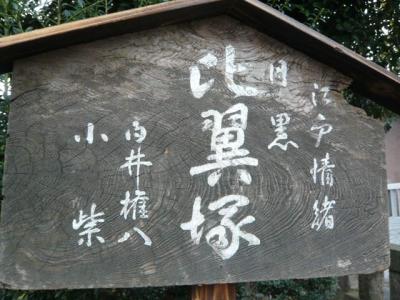 江戸情緒
目黒
比翼塚
白井権八
小紫